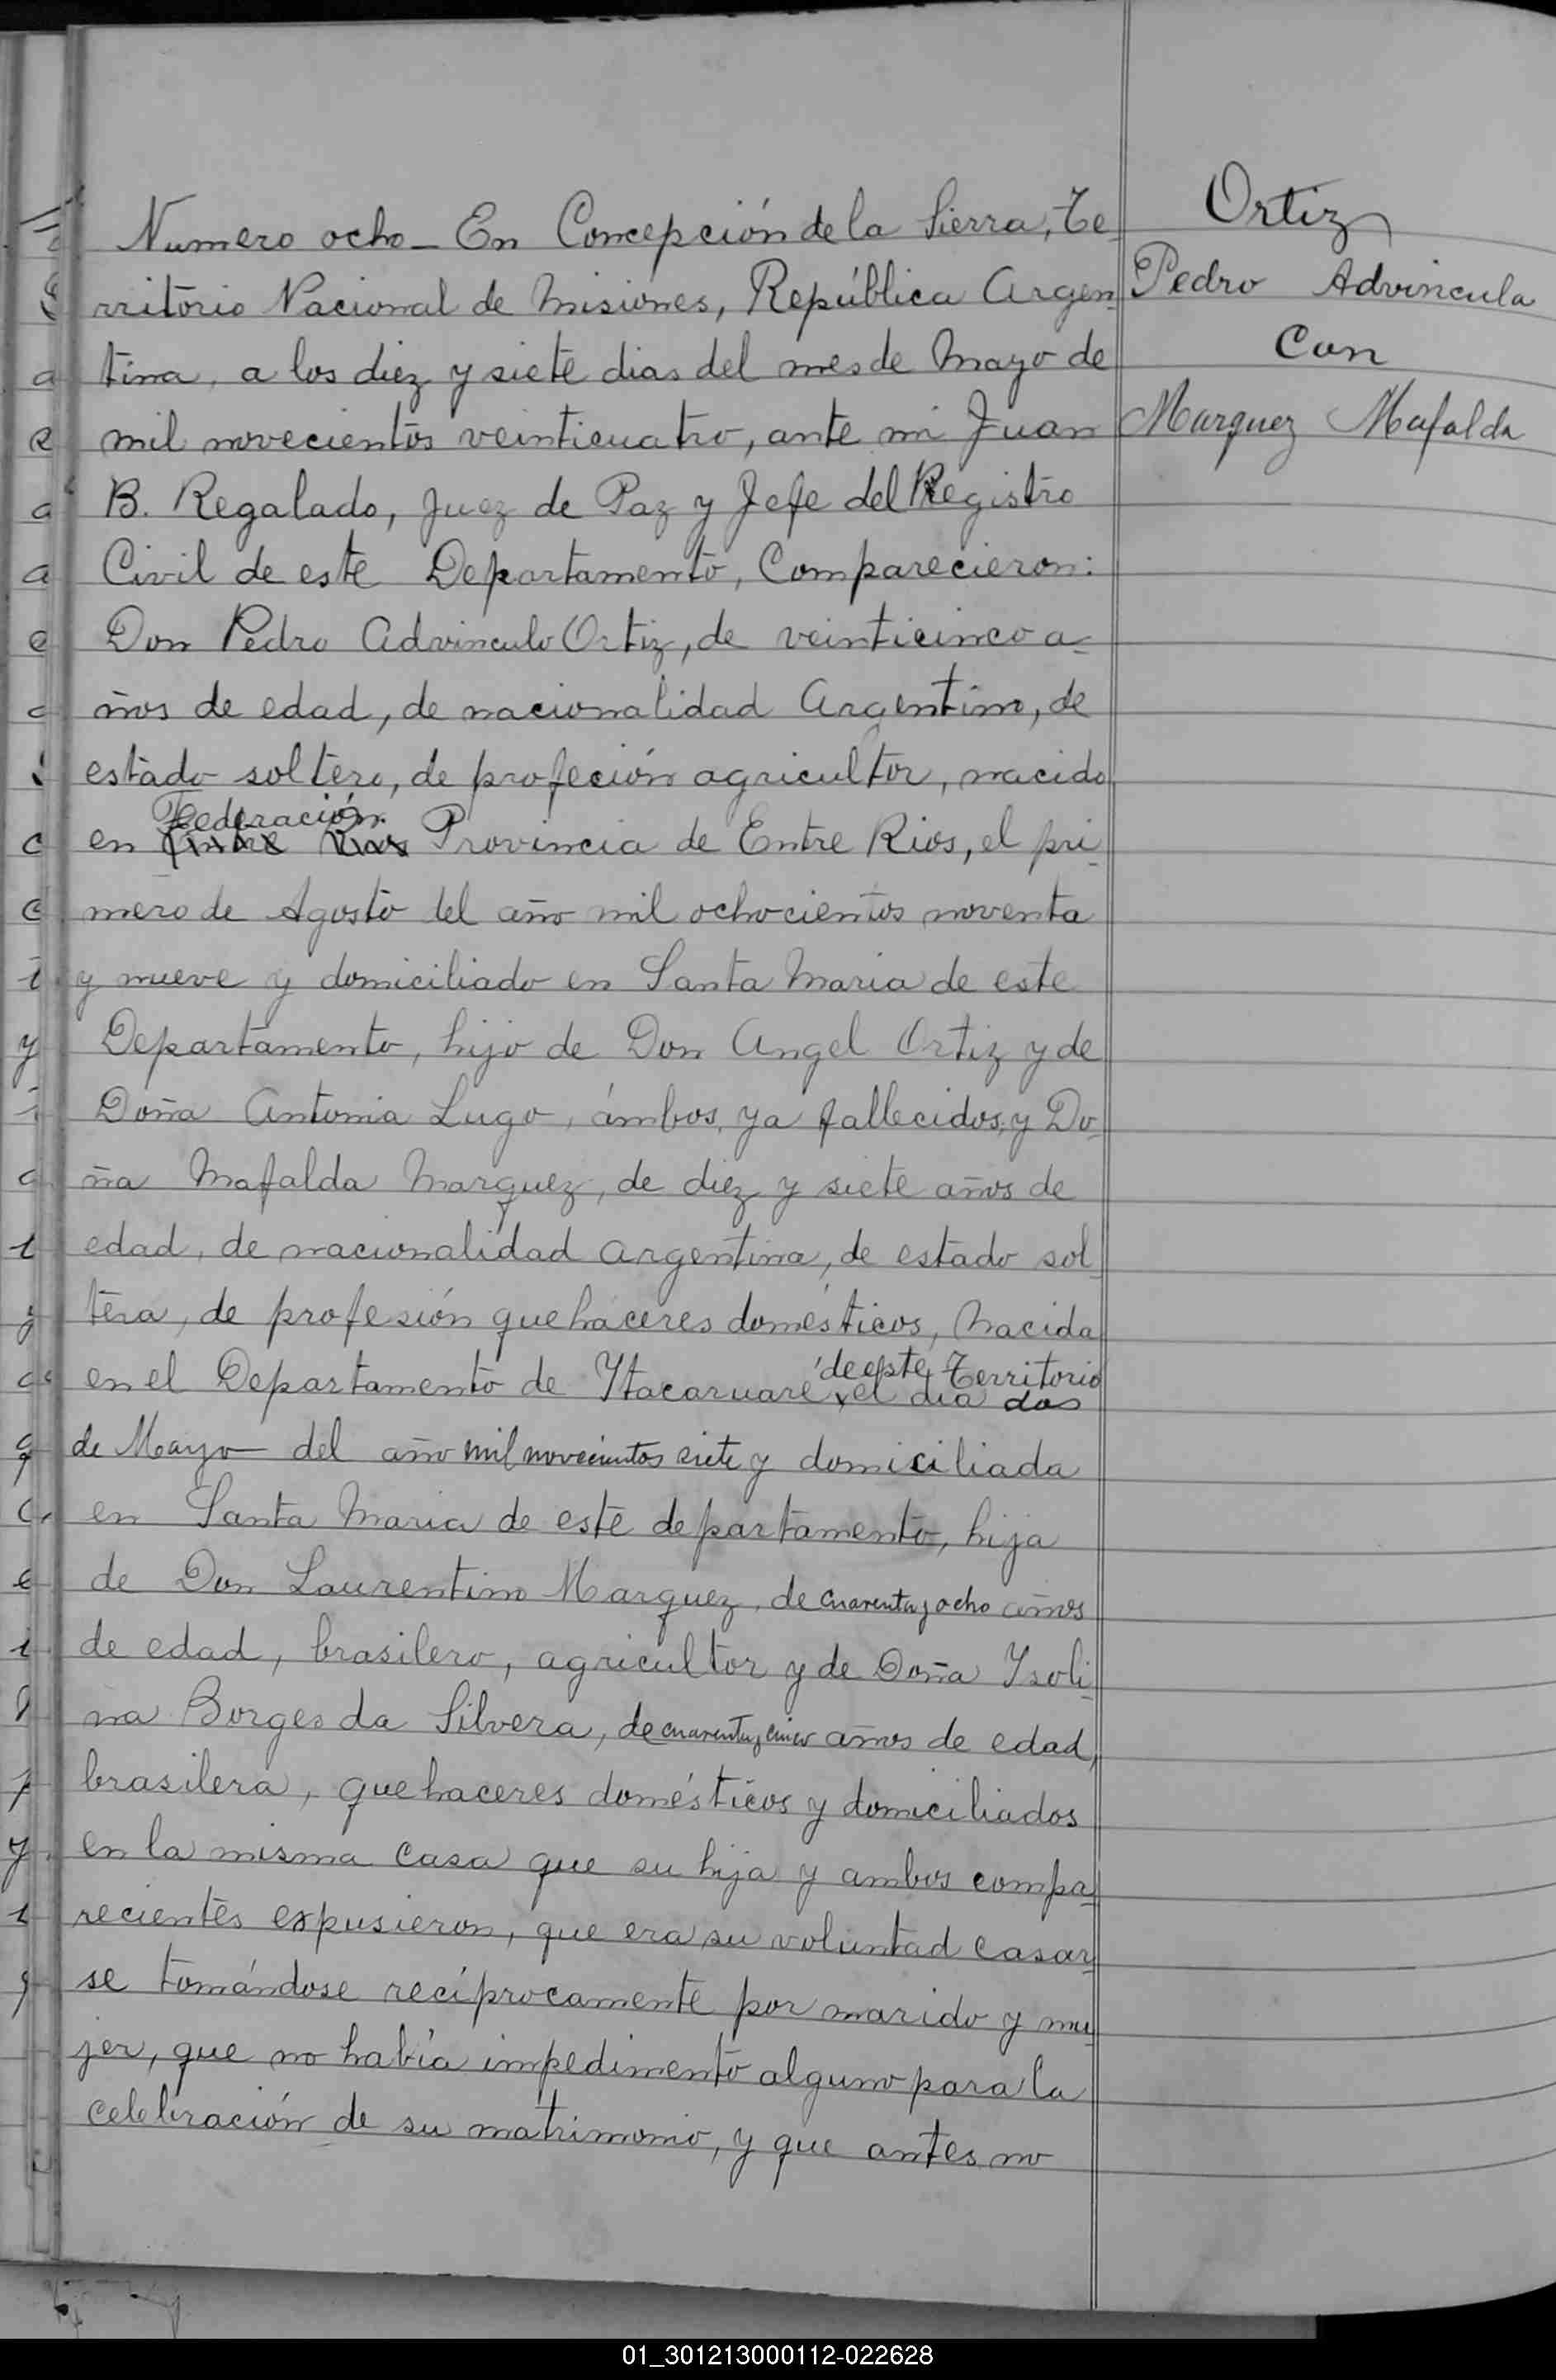 Numero ocho_ En Concepción de la Sierra, Te-
rritorio Nacional de Misiones, República Argen-
tina, a los diez y siete dias del mes de Mayo de
mil novecientos veinticuatro, ante mi Juan
B. Regalado, Juez de Paz y Jefe del Registro
Civil de este Departamento, Comparecieron:
Don Pedro Advinculo Ortiz, de veinticinco a-
ños de edad, de nacionalidad Argentino, de
estado soltero, de profeción agricultor, nacido
Federación
en Entre Rios Provincia de Entre Rios, el pri-
mero de Agosto del año mil ochocientos noventa
y nueve y domiciliado en Santa Maria de este
Departamento, hijo de Don Angel Ortiz y de
Doña Antonia Lugo, ámbos, ya fallecidos, y Do-
ña Mafalda Marquez, de diez y siete años de
edad, de nacionalidad argentina, de estado sol-
tera, de profesión quehaceres domésticos, nacida
de este Territorio
en el Departamento de Ytacaruaré, el dia dos
de Mayo del año mil novecientos siete y domiciliada
en Santa Maria de este departamento, hija
de Don Laurentino Marquez, de cuarenta y ocho años
de edad, brasilero, agricultor y de Doña Ysoli-
na Borges da Silvera, de cuarenta y cinco años de edad,
brasilera, quehaceres domésticos y domiciliados
en la misma casa que su hija y ambos compa-
recientes expusieron, que era su voluntad casar-
se tomándose recíprocamente por marido y mu-
jer, que no había impedimento alguno para la
celebración de su matrimonio, y que antes no
Ortiz
Pedro Advincula
Con
Marquez Mafalda
01_301213000112-022628